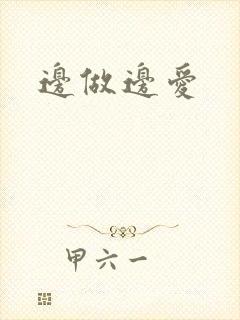 邊做邊愛
甲六一